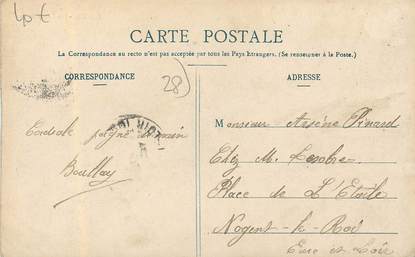 CARTE POSTALE
La Correspondance au recto n'est pas acceptée par tous les Pays Etrangers. (Se renseigner à la Poste.)
CORRESPONDANCE
ADRESSE
28
Cordiale poignée de main
Boullay
Monsieur Arsène Pinard
Chez M.
Place de L'Etoile
Nogent-le-Roi
Eure et Loir